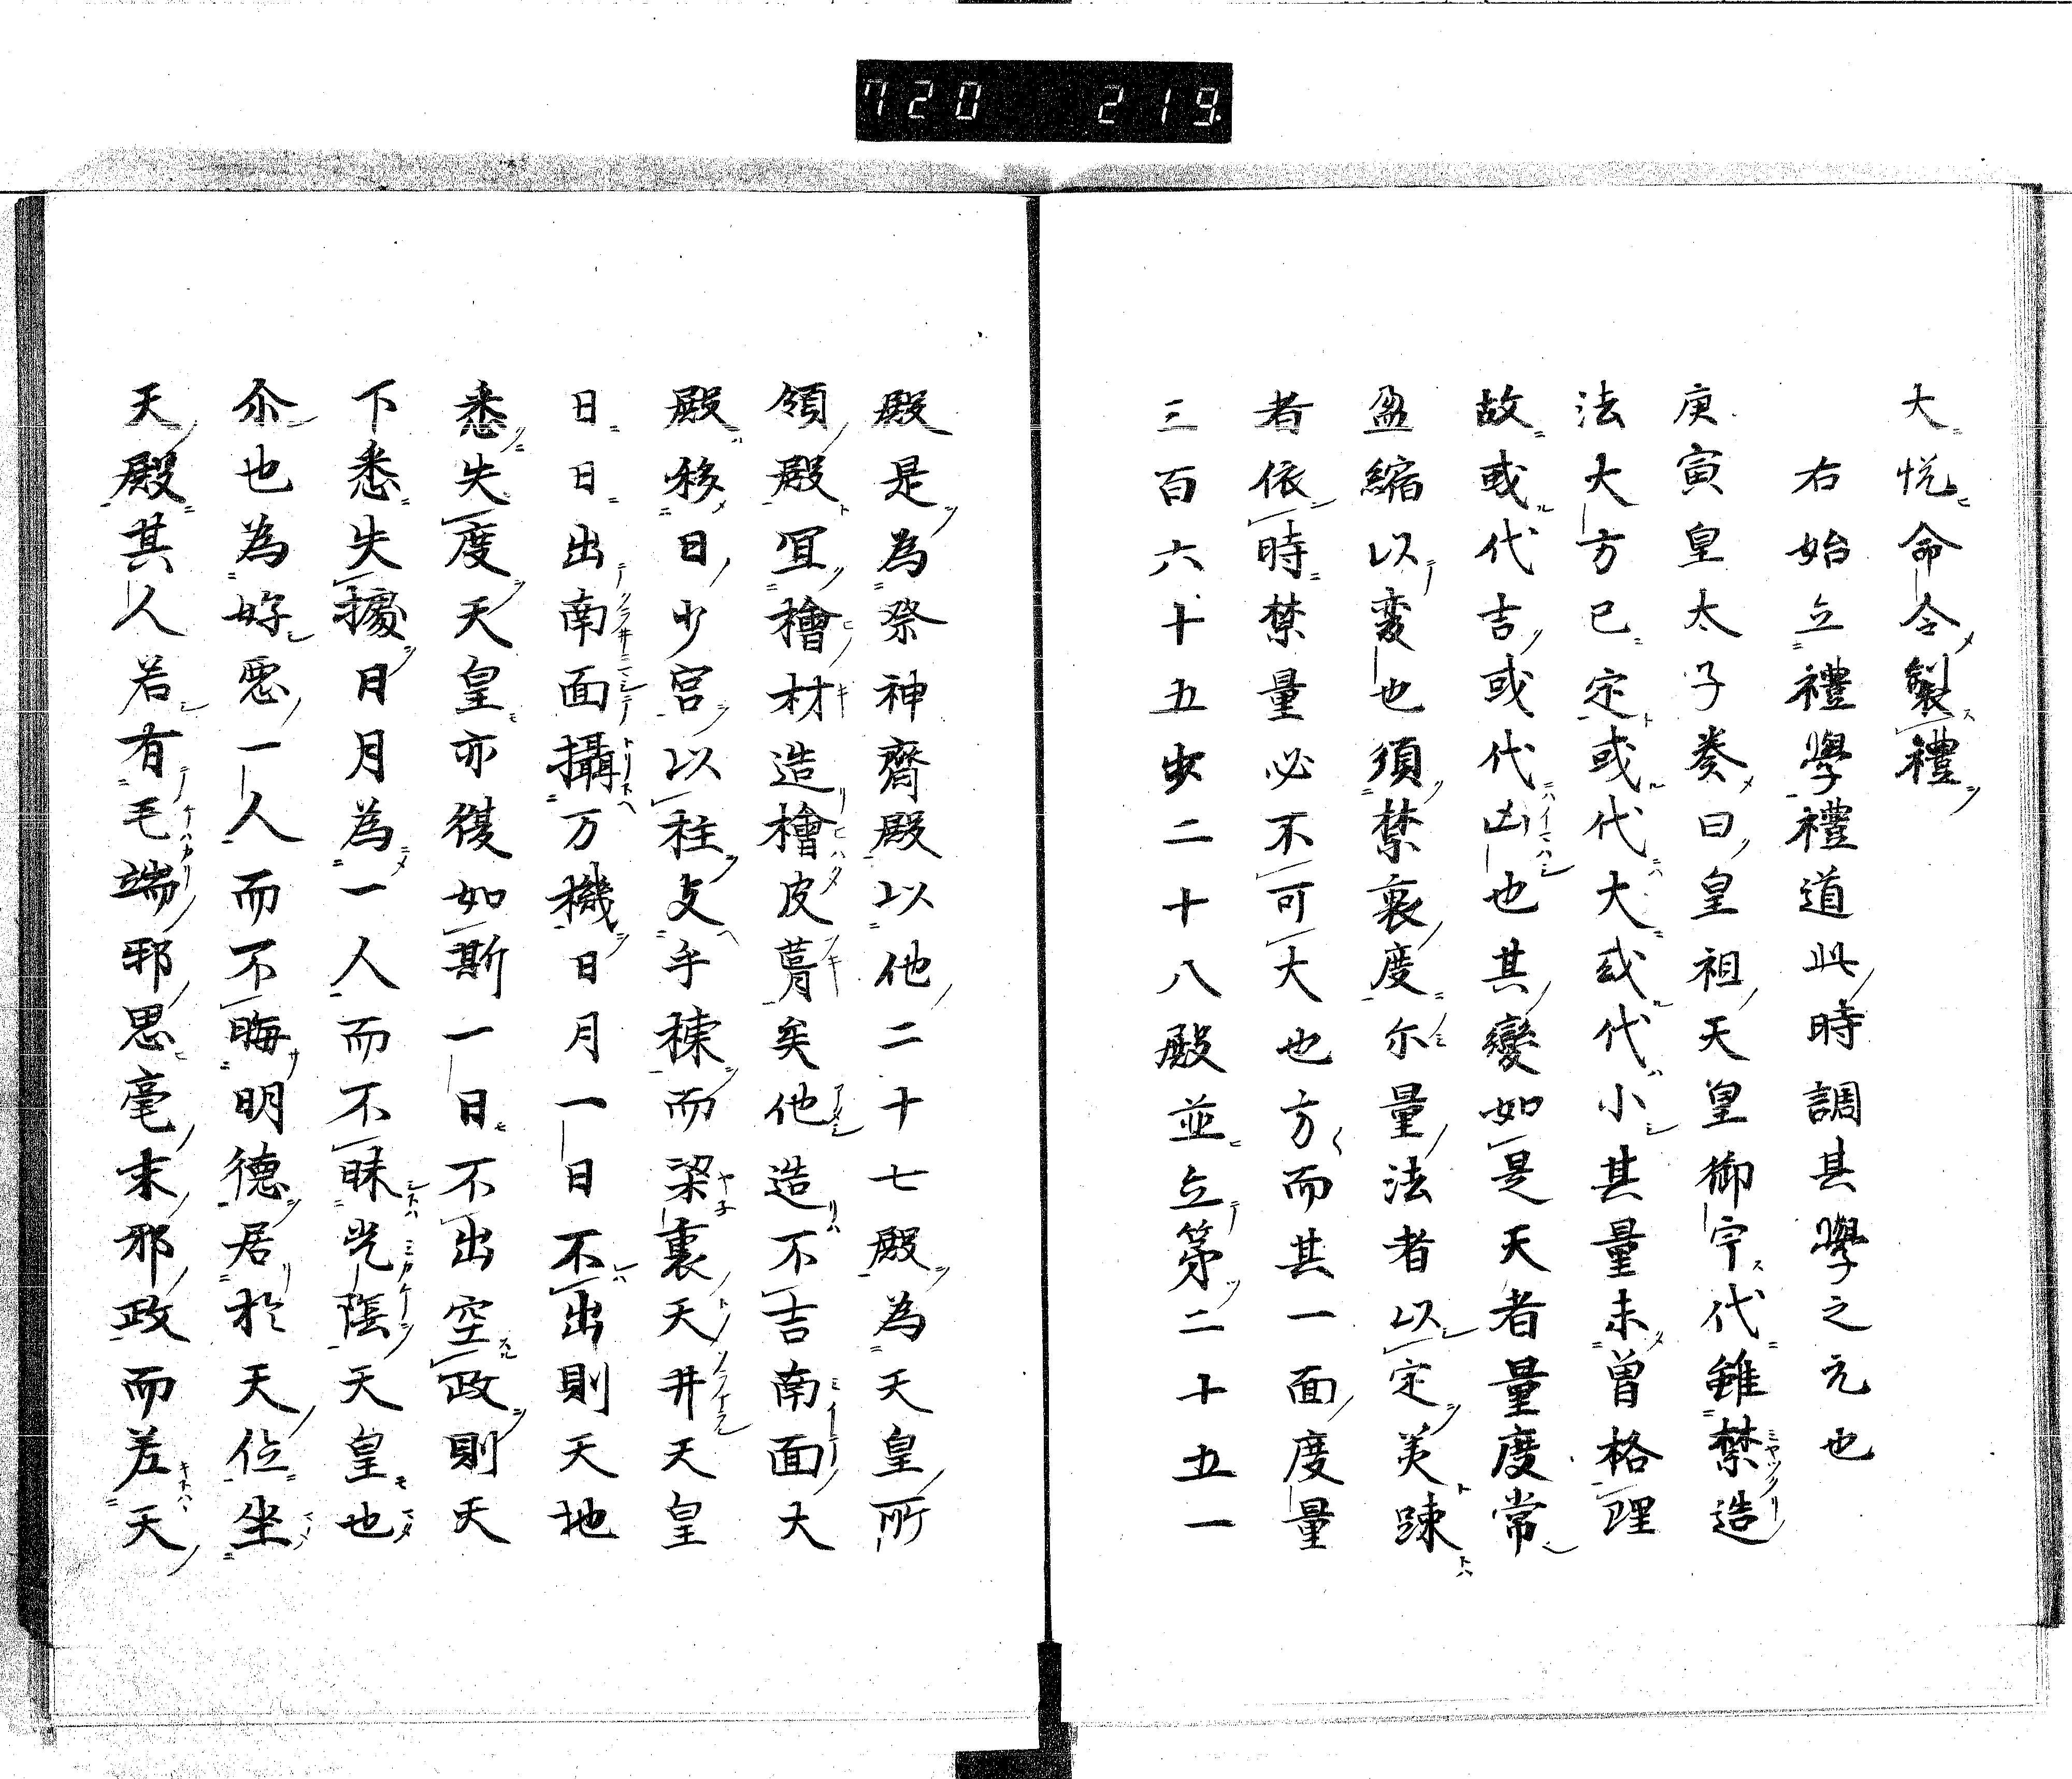 720 219.
大悦命令製禮
右始立禮學禮道此時調其學之元也
庚寅皇太子奏曰皇祖天皇御宇代雖禁造
法大方已定或代大或代小其量未曽格理
故或代吉或代凶也其變如是天者量度常
盈縮以変也須禁裏度尓量法者以定美踈
者依時禁量必不可大也方而其一面度量
三百六十五步二十八殿並立第二十五一
殿是為祭神齊殿以他二十七殿為天皇所
領殿冝檜材造檜皮葺矣他造不吉南面大
殿移日少宮以柱支乎棟而梁裏天井天皇
日日出南面攝万機日月一日不出則天地
悉失度天皇亦復如斯一日不出空政則天
下悉失據日月為一人而不昧光陰天皇也
尒也為好惡一人而不晦明德居於天位坐
天殿其人若有毛端邪思毫末邪政而差天